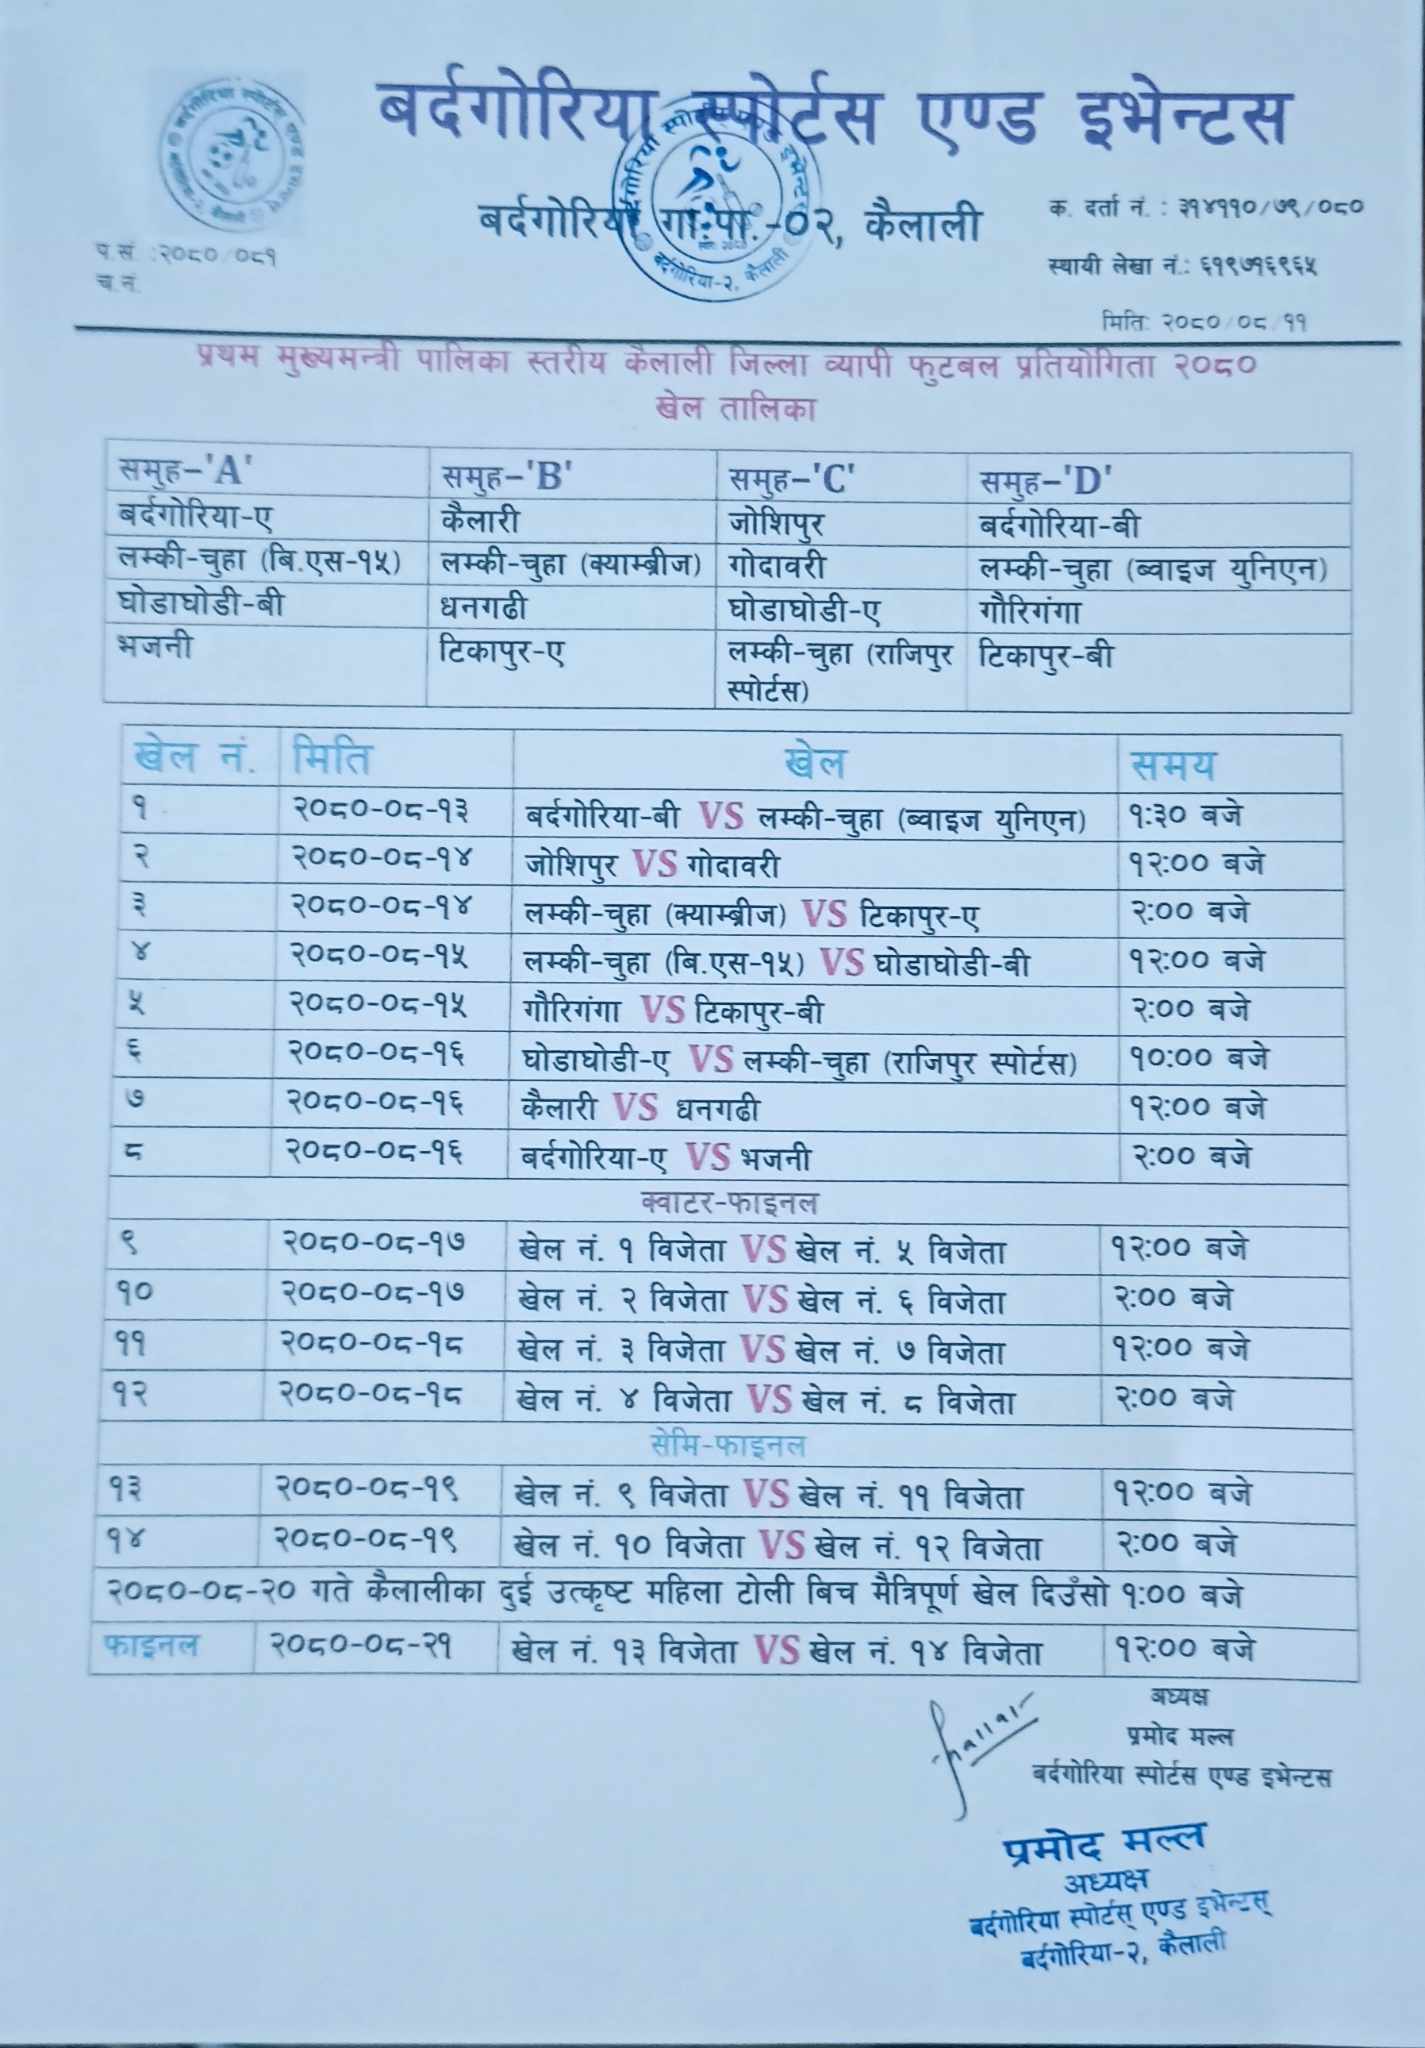 बर्दगोरिया स्पोर्टस एण्ड इभेन्टस
बर्दगोरिया गा.पा.-०२, कैलाली
क. दर्ता नं. : ३१४११०/७९/०८०
प.सं. :२०८०/०८१
स्थायी लेखा नं.: ६१९७१६९६५
च.नं.
मिति: २०८०/०८/११
बर्दगोरिया-२, कैलाली
प्रथम मुख्यमन्त्री पालिका स्तरीय कैलाली जिल्ला व्यापी फुटबल प्रतियोगिता २०८०
खेल तालिका
समुह-'A' समुह-'B' समुह-'C' समुह-'D'
बर्दगोरिया-ए कैलारी जोशिपुर बर्दगोरिया-बी
लम्की-चुहा (बि.एस-१५) लम्की-चुहा (क्याम्ब्रीज) गोदावरी लम्की-चुहा (ब्वाइज युनिएन)
घोडाघोडी-बी धनगढी घोडाघोडी-ए गौरिगंगा
भजनी टिकापुर-ए लम्की-चुहा (राजिपुर टिकापुर-बी
स्पोर्टस)
खेल नं. मिति खेल समय
१ २०८०-०८-१३ बर्दगोरिया-बी VS लम्की-चुहा (ब्वाइज युनिएन) १:३० बजे
२ २०८०-०८-१४ जोशिपुर VS गोदावरी १२:०० बजे
३ २०८०-०८-१४ लम्की-चुहा (क्याम्ब्रीज) VS टिकापुर-ए २:०० बजे
४ २०८०-०८-१५ लम्की-चुहा (बि.एस-१५) VS घोडाघोडी-बी १२:०० बजे
५ २०८०-०८-१५ गौरिगंगा VS टिकापुर-बी २:०० बजे
६ २०८०-०८-१६ घोडाघोडी-ए VS लम्की-चुहा (राजिपुर स्पोर्टस) १०:०० बजे
७ २०८०-०८-१६ कैलारी VS धनगढी १२:०० बजे
८ २०८०-०८-१६ बर्दगोरिया-ए VS भजनी २:०० बजे
क्वाटर-फाइनल
९ २०८०-०८-१७ खेल नं. १ विजेता VS खेल नं. ५ विजेता १२:०० बजे
१० २०८०-०८-१७ खेल नं. २ विजेता VS खेल नं. ६ विजेता २:०० बजे
११ २०८०-०८-१८ खेल नं. ३ विजेता VS खेल नं. ७ विजेता १२:०० बजे
१२ २०८०-०८-१८ खेल नं. ४ विजेता VS खेल नं. ८ विजेता २:०० बजे
सेमि-फाइनल
१३ २०८०-०८-१९ खेल नं. ९ विजेता VS खेल नं. ११ विजेता १२:०० बजे
१४ २०८०-०८-१९ खेल नं. १० विजेता VS खेल नं. १२ विजेता २:०० बजे
२०८०-०८-२० गते कैलालीका दुई उत्कृष्ट महिला टोली बिच मैत्रिपूर्ण खेल दिउँसो १:०० बजे
फाइनल २०८०-०८-२१ खेल नं. १३ विजेता VS खेल नं. १४ विजेता १२:०० बजे
अध्यक्ष
प्रमोद मल्ल
बर्दगोरिया स्पोर्टस एण्ड इभेन्टस
प्रमोद मल्ल
अध्यक्ष
बर्दगोरिया स्पोर्टस् एण्ड इभेन्टस्
बर्दगोरिया-२, कैलाली